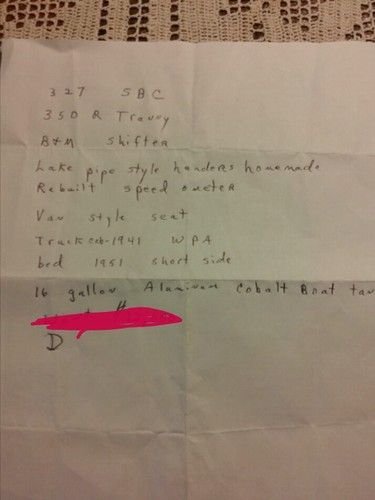 327 SBC
350 R Tranny
B&M Shifter
Lake pipe style handers homemade
Rebuilt speed ometer
Van style seat
Truck cab-1941 WPA
bed 1951 short side
16 gallon Aluminum Cobalt Boat tan
D